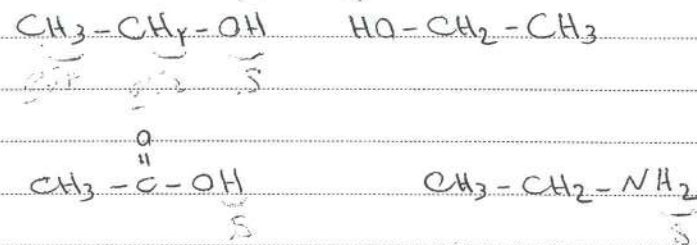 CH3-CH2-OH HO-CH2-CH3
S
O
||
CH3-C-OH CH3-CH2-NH2
S S